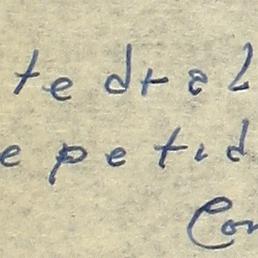 tedral
epetid
Con